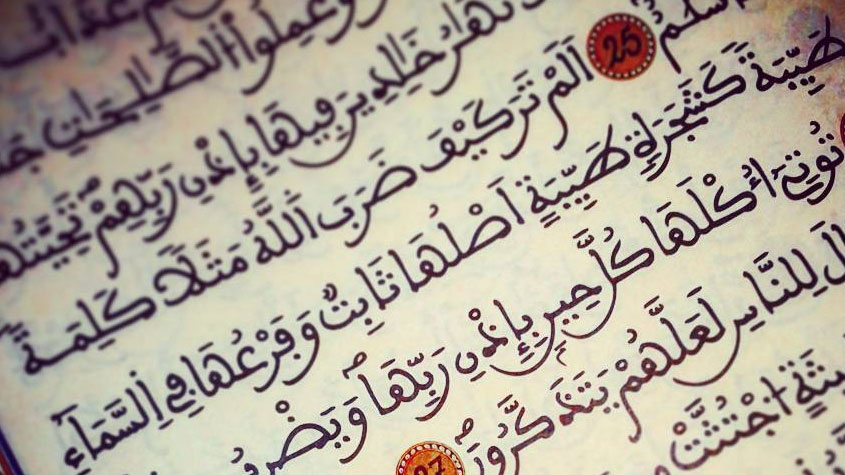 عَذَابٌ
وَعَمِلُوا۟ اُ۬لصَّٰلِحَٰتِ
نْهَٰرُ خَٰلِدِينَ فِيهَا بِإِذْنِ رَبِّهِمْ تَحِيَّتُهُ
سَلَٰمٌ 25 اَلَمْ تَرَ كَيْفَ ضَرَبَ اَ۬للَّهُ مَثَلًا كَلِمَةً
طَيِّبَةً كَشَجَرَةٍ طَيِّبَةٍ اَصْلُهَا ثَابِتٌ وَفَرْعُهَا فِي اِ۬لسَّمَآءِ
تُوتِيٓ أُكْلَهَا كُلَّ حِينٍ بِإِذْنِ رَبِّهَا وَيَضْرِبُ
لِلنَّاسِ لَعَلَّهُمْ يَتَذَكَّرُونَ 27
اجْتُثَّتْ